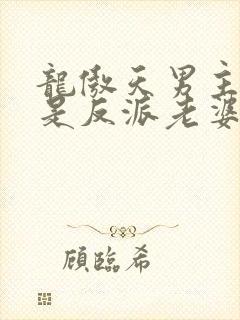 龍傲天男主
是反派老婆
顧臨希